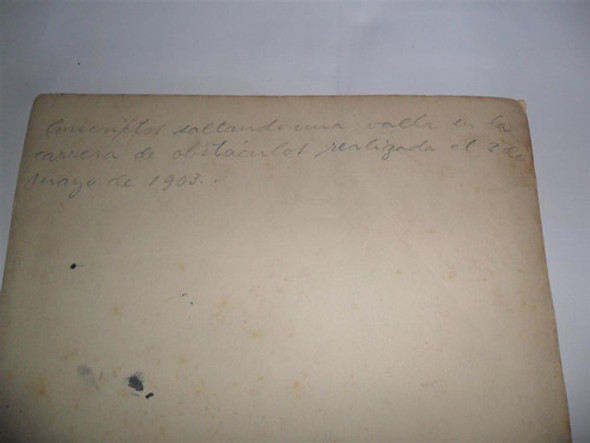 Conscriptos saltando una valla en la
carrera de obstáculos realizada el 3 de
mayo de 1903.-